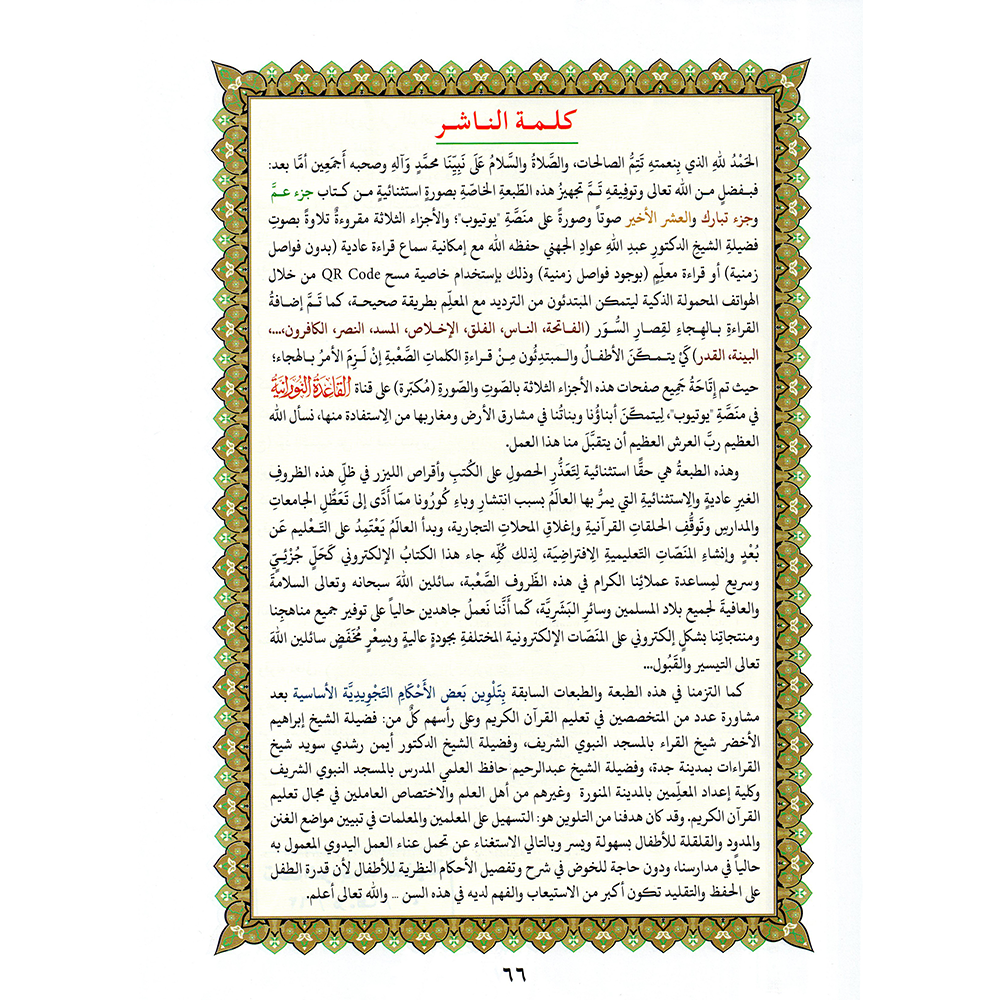 كلمة الناشر
الحَمْدُ للهِ الذي بِنعمتهِ تَتِمُّ الصالحات، والصَّلاةُ والسَّلامُ عَلَى نَبِيِّنَا محمَّدٍ وَآلهِ وصحبه أَجمَعِين أمَّا بعد:
فبفضلٍ من الله تعالى وتوفيقِهِ تمَّ تجهيزُ هذه الطَّبعةِ الخاصَّةِ بصورةٍ استثنائيةٍ من كتاب جزء عمَّ
وجزء تبارك والعشر الأخير صوتاً وصورةً على منصَّةِ "يوتيوب"؛ والأجزاء الثلاثة مقروءةٌ تلاوةً بصوتِ
فضيلةِ الشيخِ الدكتورِ عبدِ اللهِ عوادِ الجهني حفظه الله مع إمكانية سماع قراءة عادية (بدون فواصل
زمنية) أو قراءة معلِّم (بوجود فواصل زمنية) وذلك بإستخدام خاصية مسح QR Code من خلال
الهواتف المحمولة الذكية ليتمكن المبتدئون من الترديد مع المعلِّم بطريقة صحيحة، كما تمَّ إضافةُ
القراءةِ بالهِجاءِ لقِصارِ السُّوَر (الفاتحة، الناس، الفلق، الإخلاص، المسد، النصر، الكافرون،...،
البينة، القدر) كَيْ يتمكَّنَ الأطفالُ والمبتدِئُون مِنْ قراءةِ الكلماتِ الصَّعْبةِ إنْ لَزِمَ الأمرُ بالهجاء؛
حيث تم إتَاحَةُ جَميعِ صفحات هذه الأجزاء الثلاثة بالصَّوتِ والصَّورةِ (مُكبّرة) على قناة القَاعِدَةُ النُّورَانِيَّةُ
في منَصَّةِ "يوتيوب"، لِيتمكَّنَ أبناؤُنا وبناتُنا في مشارق الأرض ومغاربها من الِاستفادة منها، نسأل الله
العظيم ربَّ العرش العظيم أن يتقبَّلَ منا هذا العمل.
وهذه الطبعةُ هي حقًّا استثنائية لِتَعَذُّرِ الحصول على الكُتبِ وأقراص الليزر في ظلّ هذه الظروف
الغيرِ عاديةٍ والِاستثنائيةِ التي يمرُّ بها العالَمُ بسبب انتشارِ وباءِ كُورُونا ممّا أدَّى إلى تَعَطُّلِ الجامعاتِ
والمدارسِ وتَوقُّف الحلقاتِ القرآنيةِ وإغلاقِ المحلات التجارية، وبدأ العالَمُ يَعْتَمِدُ على التَّعْليم عَن
بُعْدٍ وإنشاءِ المنَصّاتِ التعليميةِ الِافتراضِيَة، لِذلك كُلِّه جاء هذا الكتابُ الإلكتروني كَحَلٍ جُزْئِيّ
وسريعٍ لمساعدة عملائِنا الكرام في هذه الظّروف الصَّعْبة، سائلين اللهَ سبحانه وتعالى السلامةَ
والعافيةَ لجميع بلاد المسلمين وسائرِ البَشَرِيَّة، كَما أَنَّنا نَعملُ جاهدين حالياً على توفير جميع مناهجِنا
ومنتجاتِنا بشكلٍ إلكتروني على المنَصّات الإلكترونية المختلفةِ بجودةٍ عاليةٍ وبِسِعْرٍ مُخَفَّضٍ سائلين اللهَ
تعالى التيسير والقَبُول...
كما التزمنا في هذه الطبعة والطبعات السابقة بِتَلْوِينِ بَعضِ الأَحْكامِ التَجْوِيدِيَّة الأساسية بعد
مشاورة عدد من المتخصصين في تعليم القرآن الكريم وعلى رأسهم كلٌّ من: فضيلة الشيخ إبراهيم
الأخضر شيخ القراء بالمسجد النبوي الشريف، وفضيلة الشيخ الدكتور أيمن رشدي سويد شيخ
القراءات بمدينة جدة، وفضيلة الشيخ عبدالرحيم حافظ العلمي المدرس بالمسجد النبوي الشريف
وكلية إعداد المعلِّمين بالمدينة المنورة وغيرهم من أهل العلم والاختصاص العاملين في مجال تعليم
القرآن الكريم. وقد كان هدفنا من التلوين هو: التسهيل على المعلمين والمعلمات في تبيين مواضع الغنن
والمدود والقلقلة للأطفال بسهولة ويسر وبالتالي الاستغناء عن تحمل عناء العمل اليدوي المعمول به
حالياً في مدارسنا، ودون حاجة للخوض في شرح وتفصيل الأحكام النظرية للأطفال لأن قدرة الطفل
على الحفظ والتقليد تكون أكبر من الاستيعاب والفهم لديه في هذه السن ... والله تعالى أعلم.
٦٦